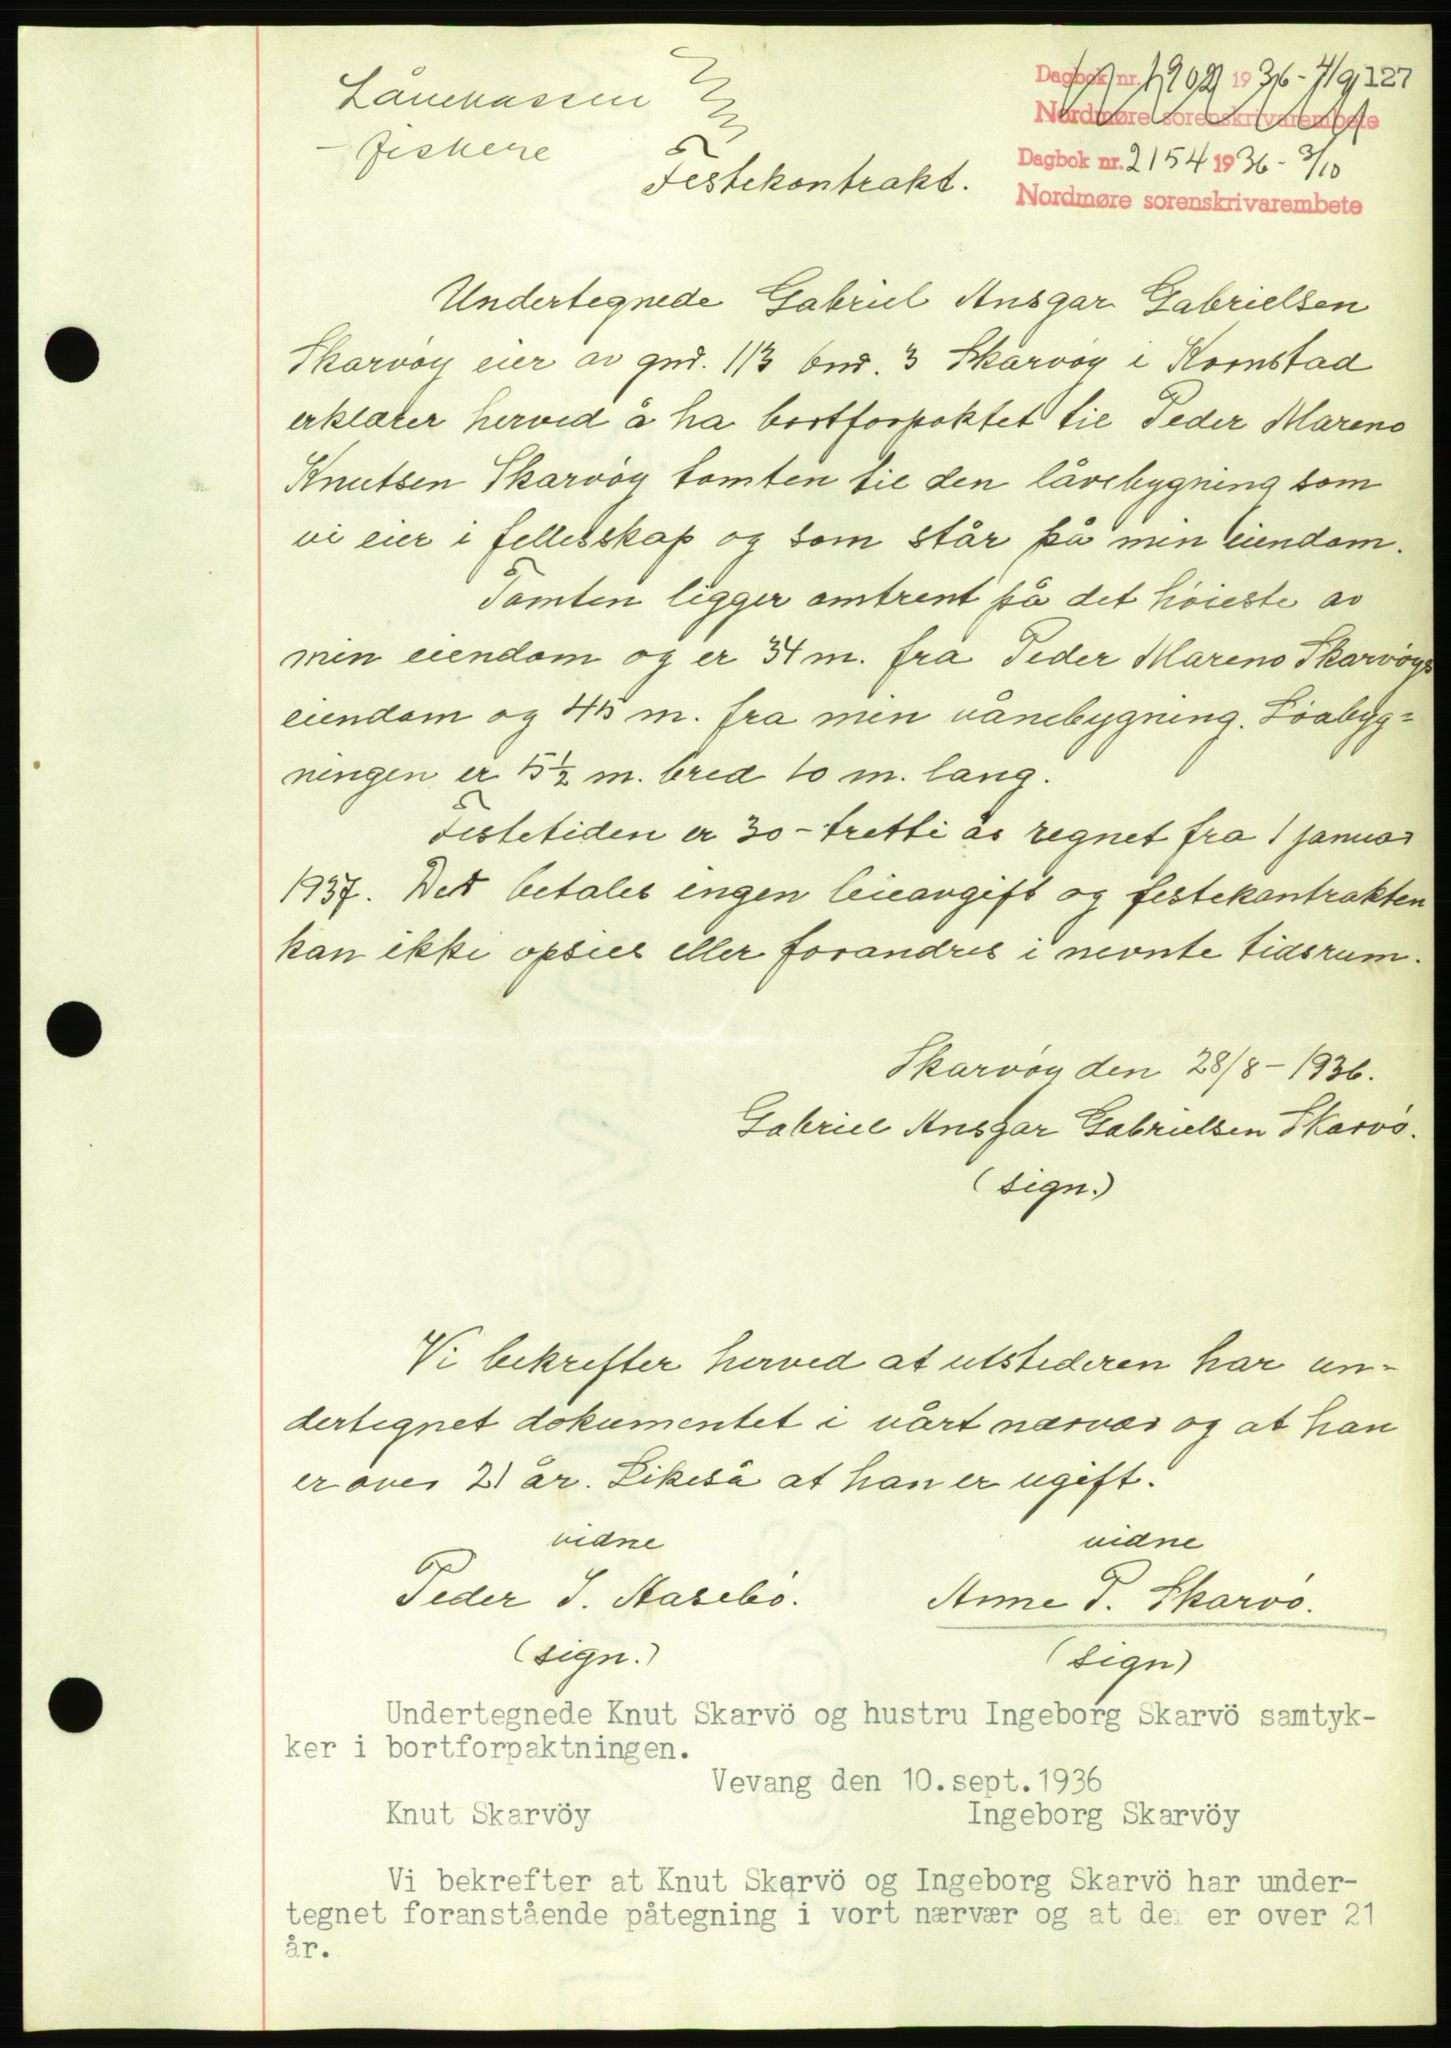 Lånekassen
- fiskere
Dagbok nr. 1902 1936 - 4/9 127
Nordmøre sorenskrivarembete
Dagbok nr. 2154 1936 - 3/10
Nordmøre sorenskrivarembete
Festekontrakt.
Undertegnede Gabriel Ansgar Gabrielsen
Skarvöy eier av gnr. 113 bnr. 3 Skarvöy i Kornstad
erklærer herved å ha bortforpaktet til Peder Mareno
Knutsen Skarvöy tomten til den låvebygning som
vi eier i fellesskap og som står på min eiendom.
Tomten ligger omtrent på det höieste av
min eiendom og er 34 m. fra Peder Mareno Skarvöys
eiendom og 45 m. fra min vånebygning. Löabyg=
ningen er 5 1/2 m. bred 10 m. lang.
Festetiden er 30 - tretti år regnet fra 1 januar
1937. Det betales ingen leieavgift og festekontrakten
kan ikke opsies eller forandres i nevnte tidsrum.
Skarvöy den 28/8 - 1936.
Gabriel Ansgar Gabrielsen Skarvö.
(sign.)
Vi bekrefter herved at utstederen har un-
dertegnet dokumentet i vårt nærvær og at han
er over 21 år. Likeså at han er ugift.
vidne vidne
Peder I. Aasebö. Anne P. Skarvö.
(sign.) (sign)
Undertegnede Knut Skarvö og hustru Ingeborg Skarvö samtyk-
ker i bortforpaktningen.
Vevang den 10.sept.1936
Knut Skarvöy Ingeborg Skarvöy
Vi bekrefter at Knut Skarvö og Ingeborg Skarvö har under-
tegnet foranstående påtegning i vort nærvær og at de er over 21
år.